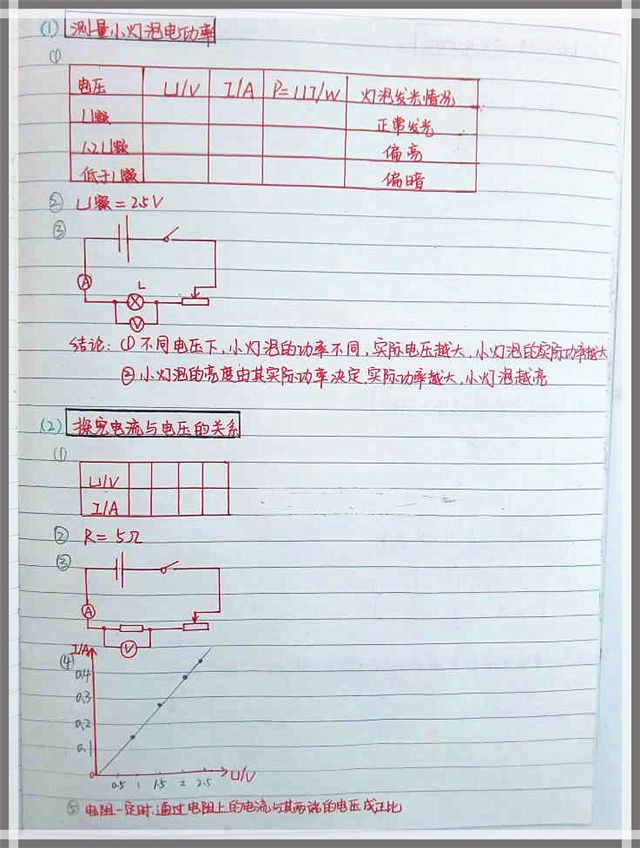 (1) 测量小灯泡电功率
①
电压 U/V I/A P=UI/W 灯泡发光情况
U额 正常发光
1.2U额 偏亮
低于U额 偏暗
② U额=2.5V
③
A
L
V
结论: ① 不同电压下,小灯泡的功率不同,实际电压越大,小灯泡的实际功率越大
② 小灯泡的亮度由其实际功率决定,实际功率越大,小灯泡越亮
(2) 探究电流与电压的关系
①
U/V
I/A
② R=5Ω
③
A
V
④ I/A
0.4
0.3
0.2
0.1
0
0.5 1 1.5 2 2.5 U/V
⑤ 电阻一定时,通过电阻上的电流与其两端的电压成正比